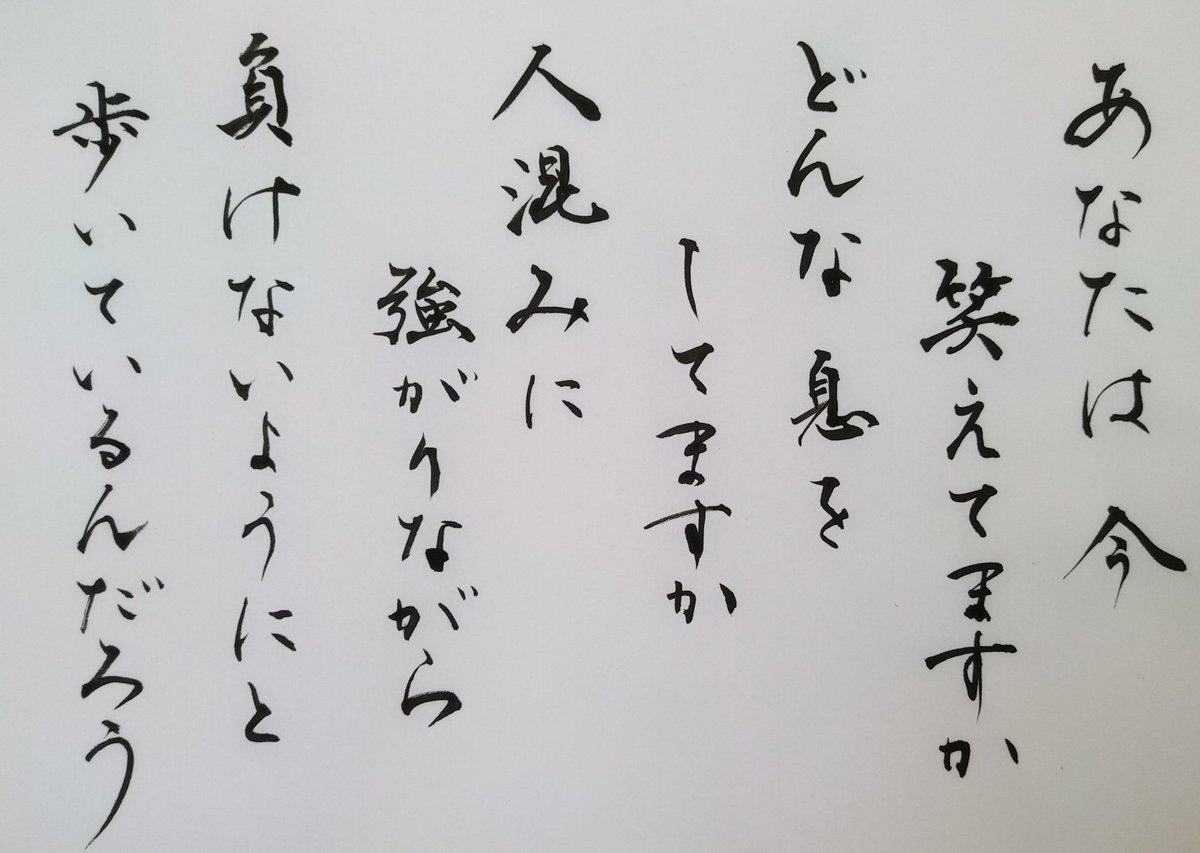 あなたは今
笑えてますか
どんな息を
してますか
人混みに
強がりながら
負けないようにと
歩いているんだろう